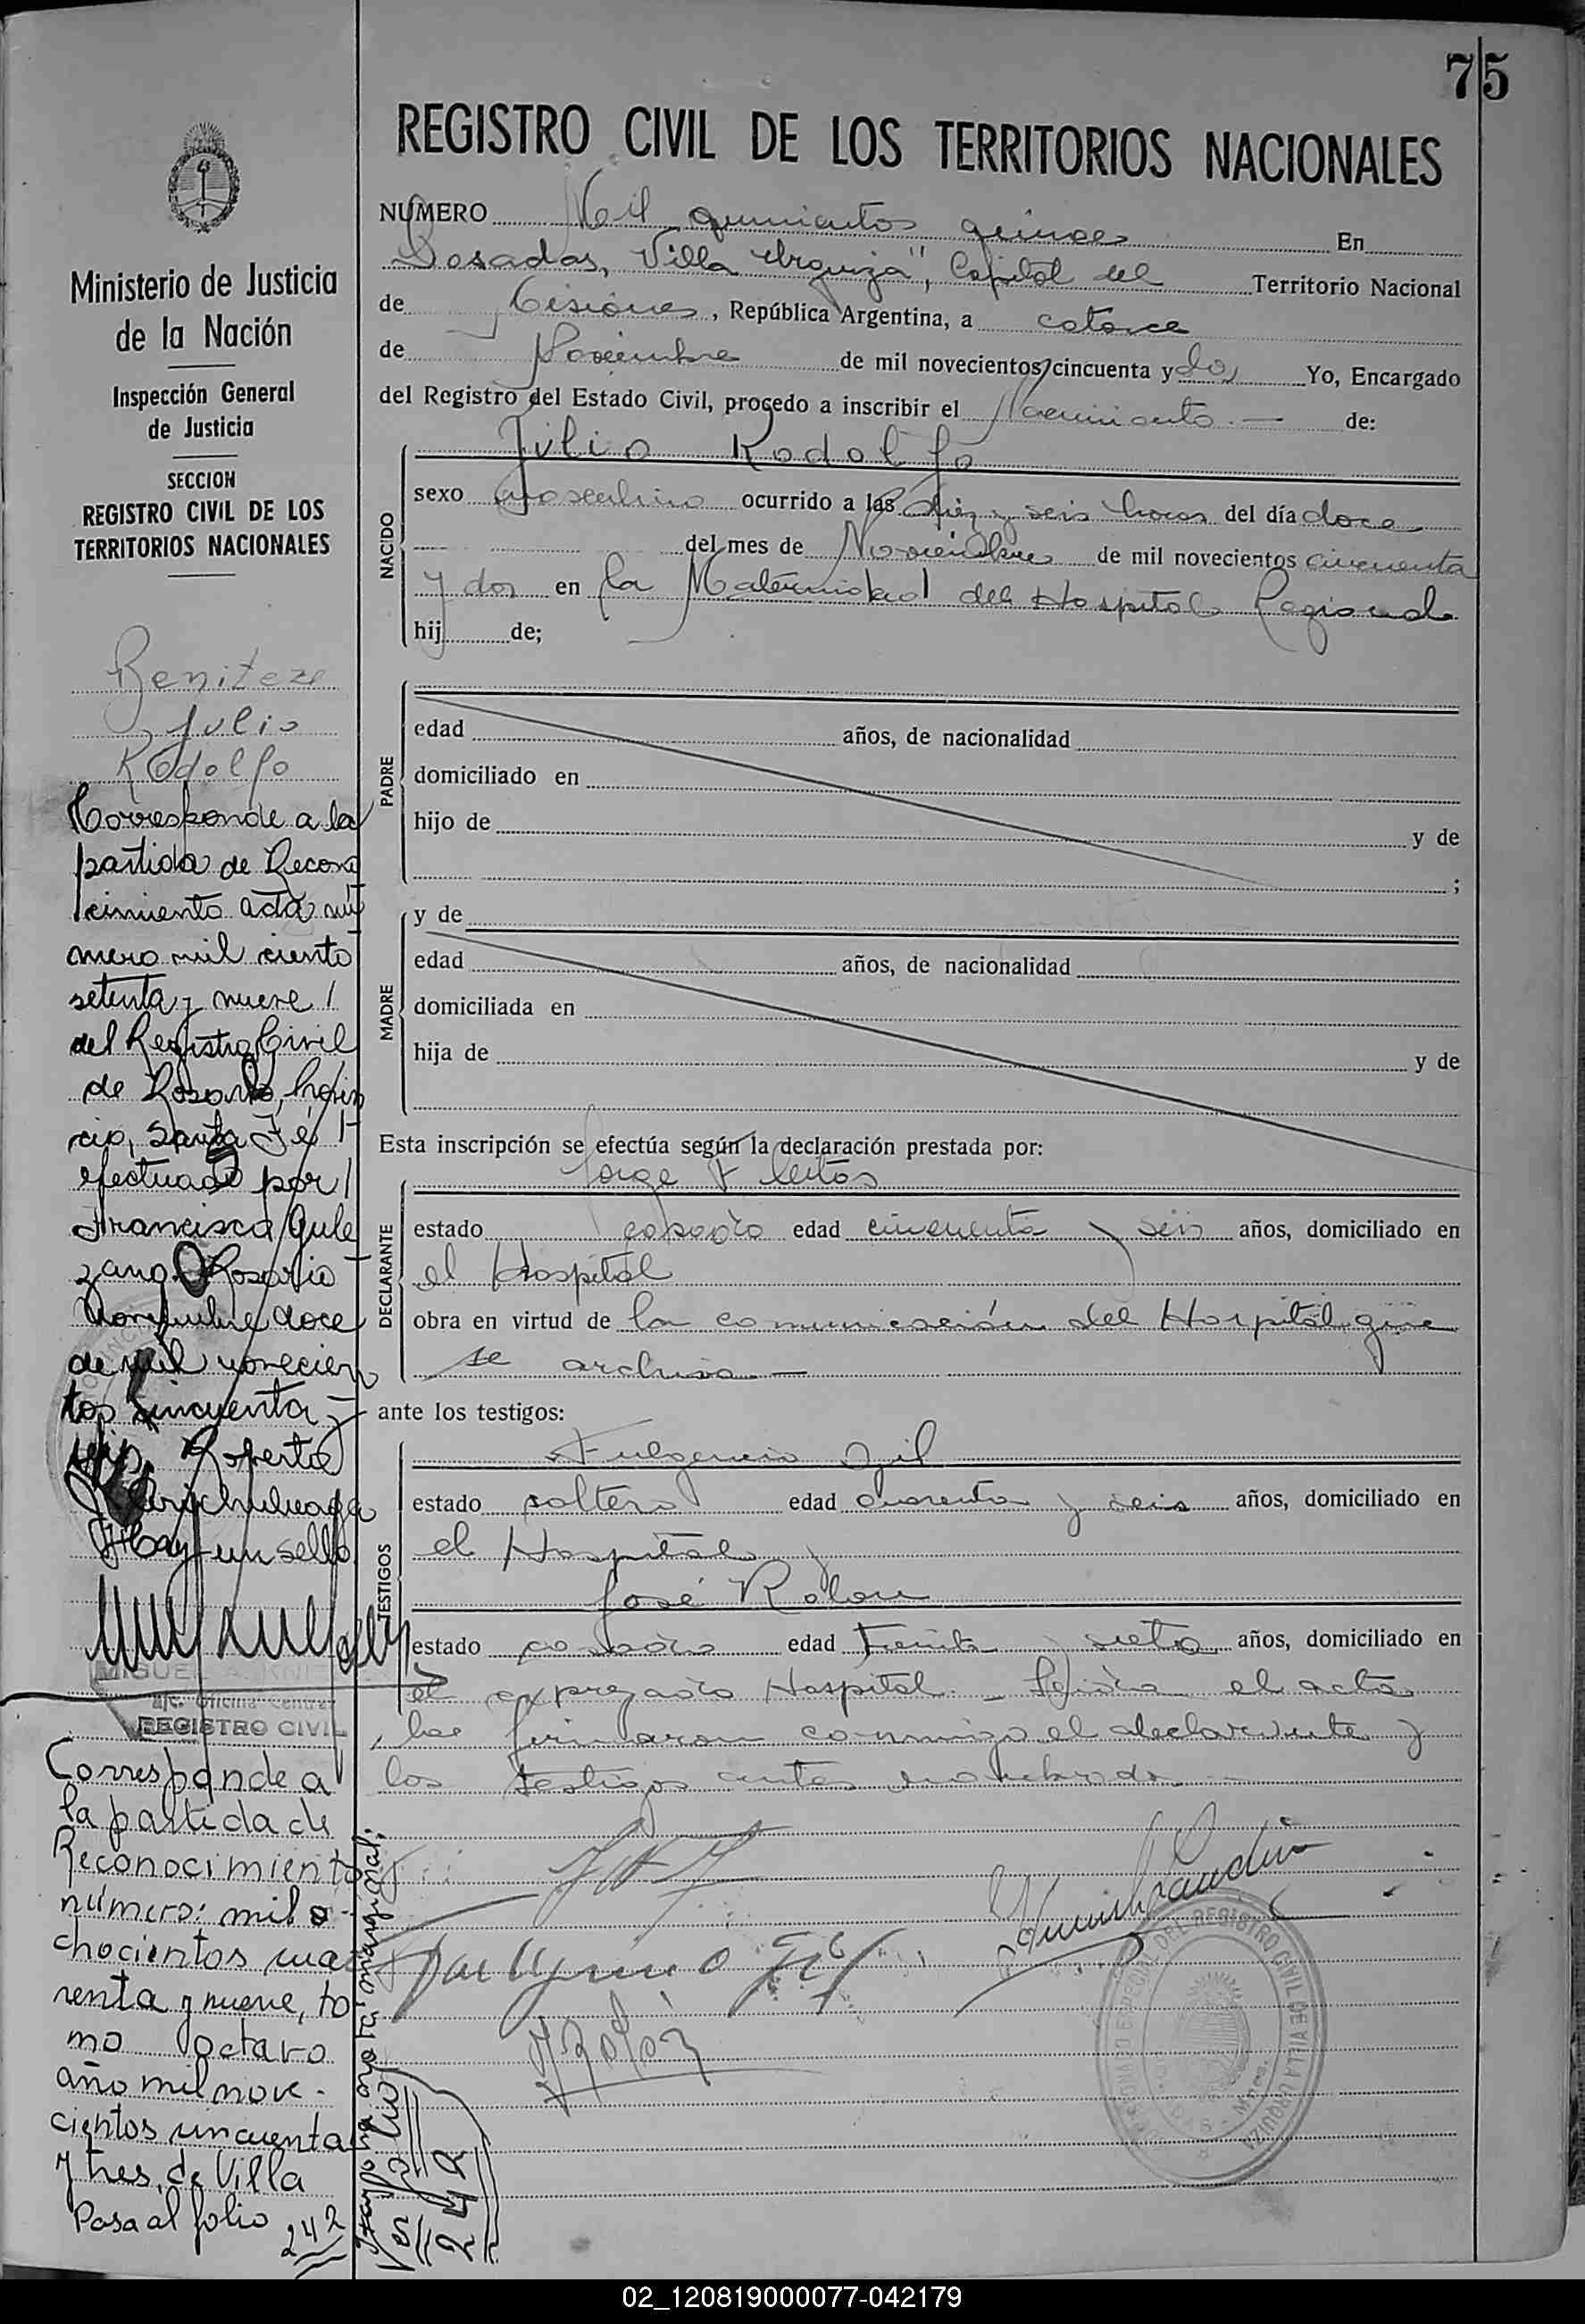 75
REGISTRO CIVIL DE LOS TERRITORIOS NACIONALES
Ministerio de Justicia
de la Nación
Inspección General
de Justicia
SECCION
REGISTRO CIVIL DE LOS
TERRITORIOS NACIONALES
Benitez
Julio
Rodolfo
Corresponde a la
partida de Recono
cimiento acta nú
mero mil ciento
setenta y nueve /
del Registro Civil
de Rosario, Provin
cia, Santa Fé /
efectuado por /
Francisca
Rosario
Noviembre doce
de mil novecien
tos cincuenta y
seis. Roberto
Hay un sello
MIGUEL A.
Oficina Central
REGISTRO CIVIL
Corresponde a
la partida de
Reconocimiento
número: mil o-
chocientos cua
renta y nueve, to
mo octavo
año mil nove-
cientos cincuenta
y tres, de Villa
Pasa al folio 242
NUMERO Mil quinientos quince En
Posadas, Villa Urquiza", Capital del Territorio Nacional
de Misiones, República Argentina, a catorce
de Noviembre de mil novecientos cincuenta y dos Yo, Encargado
del Registro del Estado Civil, procedo a inscribir el Nacimiento.— de:
NACIDO
Julio Rodolfo
sexo masculino ocurrido a las diez y seis horas del día doce
del mes de Noviembre de mil novecientos cincuenta
y dos en la Maternidad del Hospital Regional
hij de;
PADRE
edad años, de nacionalidad
domiciliado en
hijo de y de
;
MADRE
y de
edad años, de nacionalidad
domiciliada en
hija de y de
Esta inscripción se efectúa según la declaración prestada por:
DECLARANTE
Jorge Fleitas
estado casado edad cincuenta y seis años, domiciliado en
el Hospital
obra en virtud de la comunicación del Hospital que
se archiva—
ante los testigos:
TESTIGOS
Fulgencio Gil
estado soltero edad cuarenta y seis años, domiciliado en
el Hospital y
José Rolon
estado casado edad treinta y siete años, domiciliado en
el expresado Hospital.— Leída el acta
la firmaron conmigo el declarante y
los testigos antes nombrados.—
J Rolón
REGISTRO CIVIL DE VILLA URQUIZA
nota marginal:
242
02_120819000077-042179